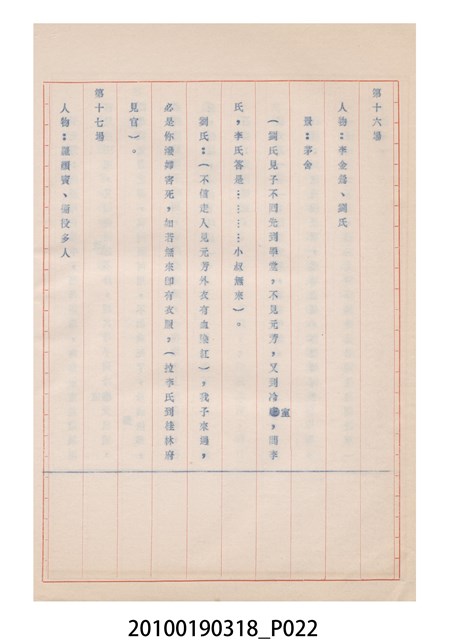 第十六場
人物：李金蓮、劉氏
景：茅舍
（劉氏見子不回先到學堂，不見元芳，又到冷室，問李
氏，李氏答是………小叔無來）。
劉氏：（不信走人見元芳外衣有血染紅），我子來過，
必是你謀害死，如若無來即有衣服，（拉李氏到桂林府
見官）。
第十七場
人物：謝賓、衙役多人
20100190318_P022